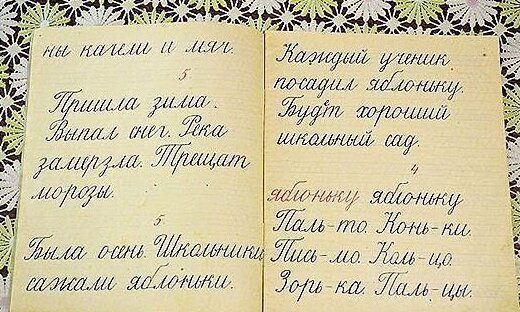 ны качели и мяч.
5
Пришла зима.
Выпал снег. Река
замерзла. Трещат
морозы.
5
Была осень. Школьники
сажали яблоньки.
Каждый ученик
посадил яблоньку.
Будет хороший
школьный сад.
4
яблоньку яблоньку
Паль-то. Конь-ки.
Пись-мо. Коль-цо
Зорь-ка. Паль-цы.